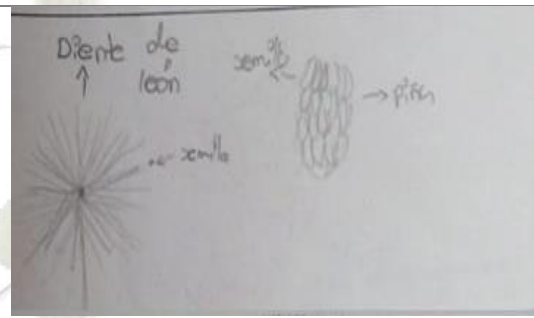 Diente de
león
semilla
semilla
piña